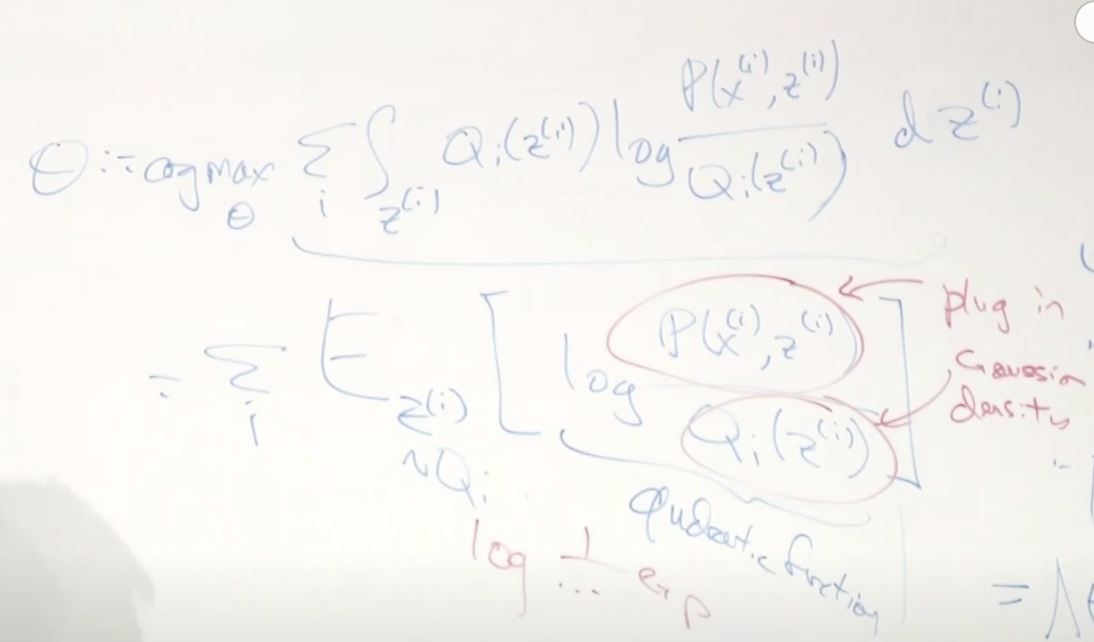 Θ := arg max_Θ Σ_i ∫_{z^{(i)}} Q_i(z^{(i)}) log P(x^{(i)}, z^{(i)}) / Q_i(z^{(i)}) d z^{(i)}
= Σ_i E_{z^{(i)} ~ Q_i} [ log P(x^{(i)}, z^{(i)}) / Q_i(z^{(i)}) ]
plug in
Gaussian
density
Quadratic function
log 1/... exp
=